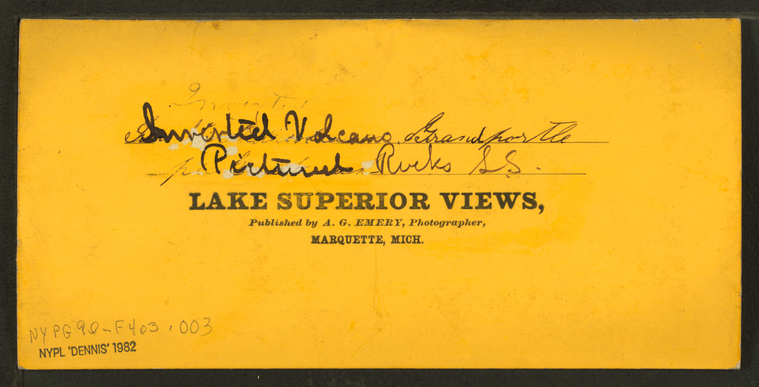 Inverted
Inverted Volcano Grand portle
Pictured Rocks L.S.
LAKE SUPERIOR VIEWS,
Published by A. G. EMERY, Photographer,
MARQUETTE, MICH.
NYPG90-F403.003
NYPL 'DENNIS' 1982